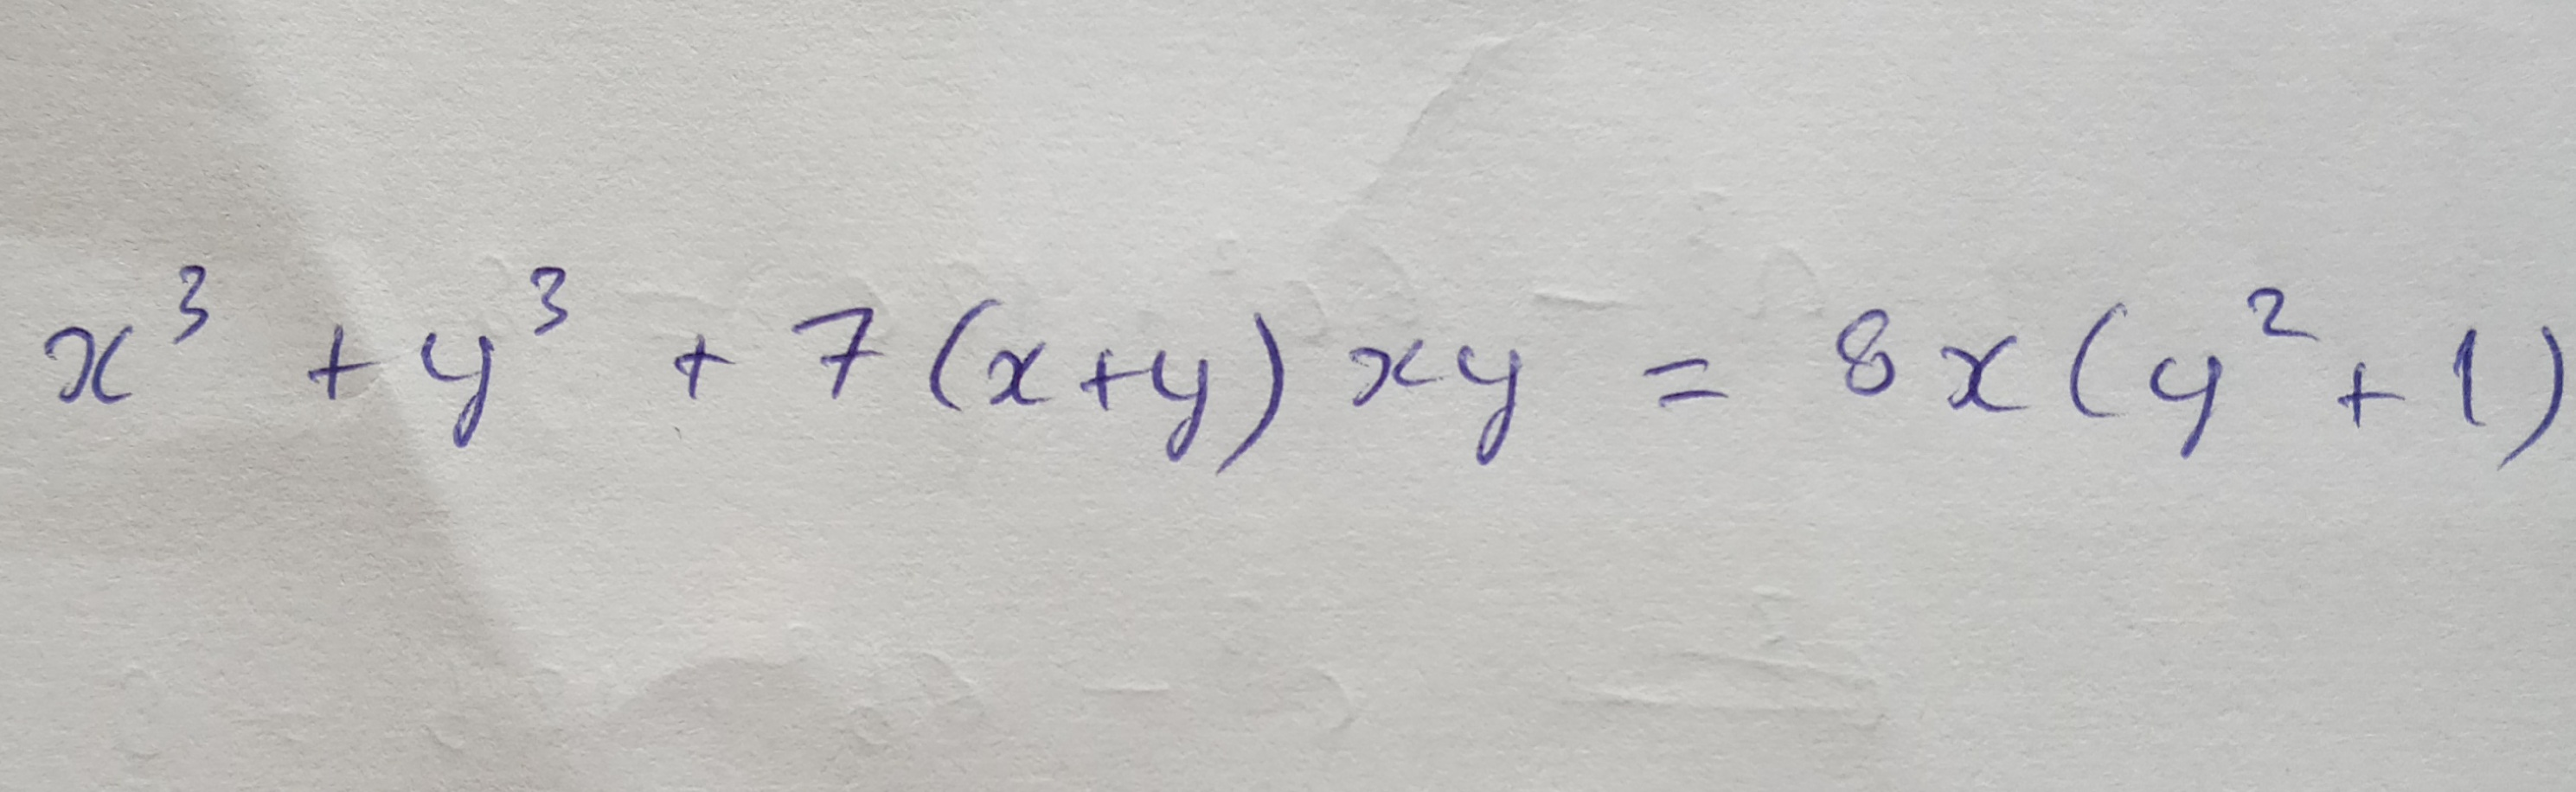 x³ + y³ + 7(x+y)xy = 8x(y² + 1)